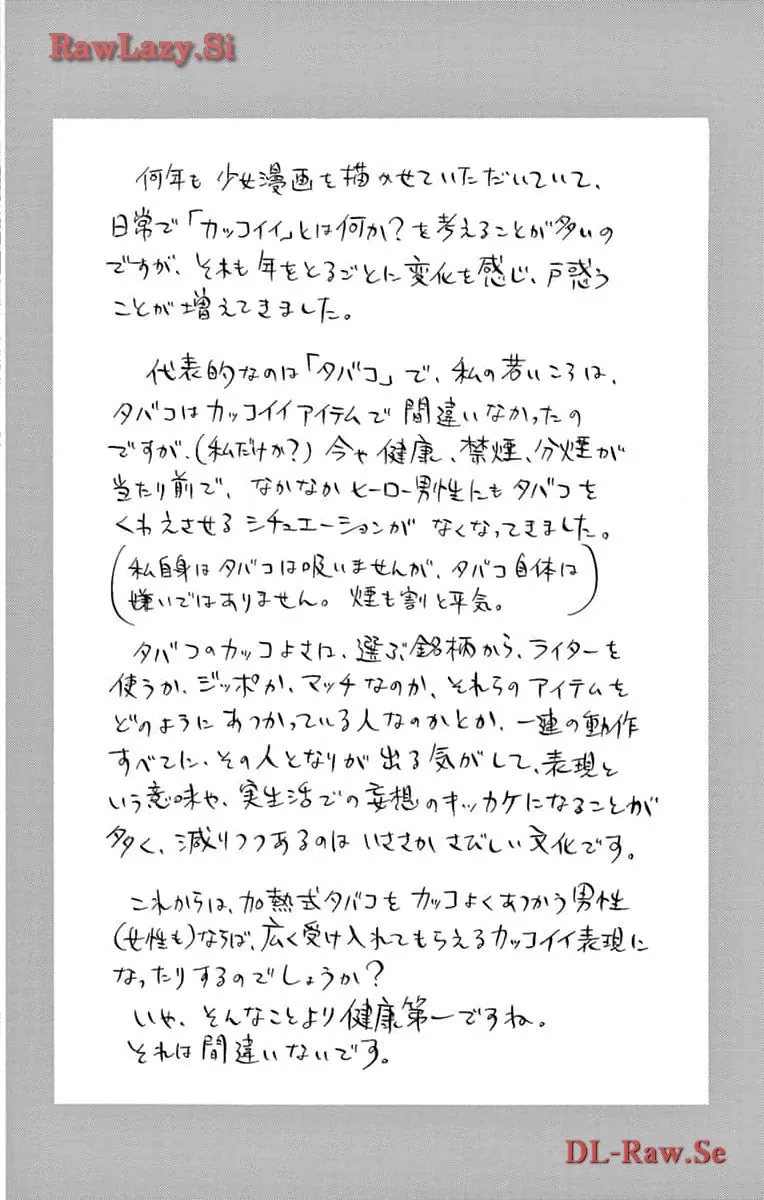 RawLazy.Si
何年も少女漫画を描かせていただいていて、
日常で「カッコイイ」とは何か?を考えることが多いの
ですが、それも年をとるごとに変化を感じ、戸惑う
ことが増えてきました。
代表的なのは「タバコ」で、私の若いころは、
タバコはカッコイイアイテムで間違いなかったの
ですが、(私だけか?)今や健康、禁煙、分煙が
当たり前で、なかなかヒーロー男性にもタバコを
くわえさせるシチュエーションがなくなってきました。
(私自身はタバコは吸いませんが、タバコ自体は
嫌いではありません。煙も割と平気。)
タバコのカッコよさは、選ぶ銘柄から、ライターを
使うか、ジッポか、マッチなのか、それらのアイテムを
どのようにあつかっている人なのかとか、一連の動作
すべてに、その人となりが出る気がして、表現と
いう意味や、実生活での妄想のキッカケになることが
多く、減りつつあるのはいささかさびしい文化です。
これからは、加熱式タバコをカッコよくあつかう男性
(女性も)ならば、広く受け入れてもらえるカッコイイ表現に
なったりするのでしょうか?
いや、そんなことより健康第一ですね。
それは間違いないです。
DL-Raw.Se